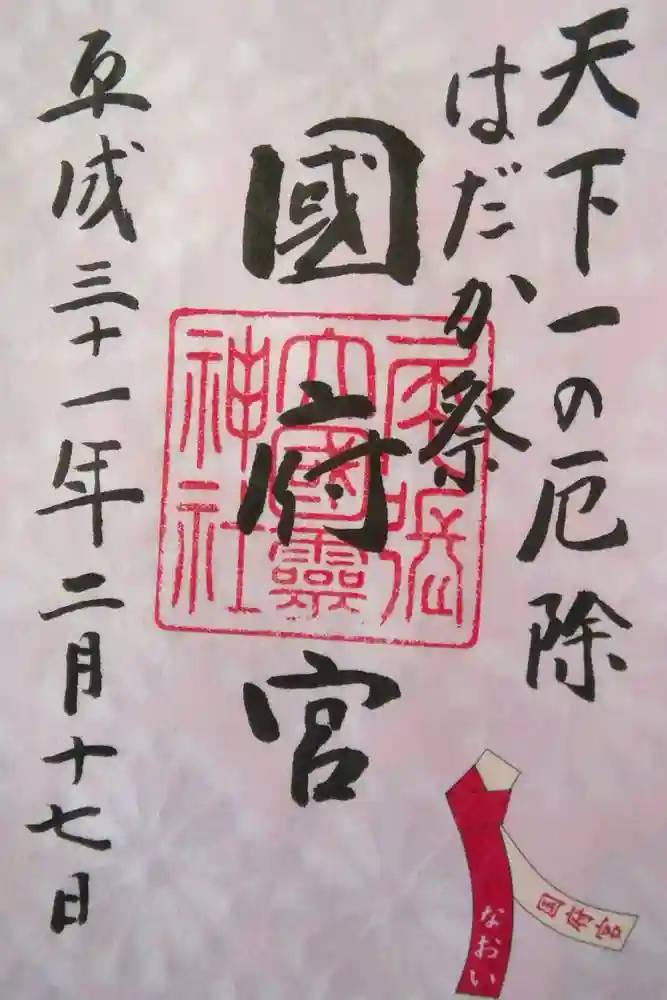 天下一の厄除
はだか祭
國府宮
尾張
大國靈
神社
平成三十一年二月十七日
国府宮
なおい